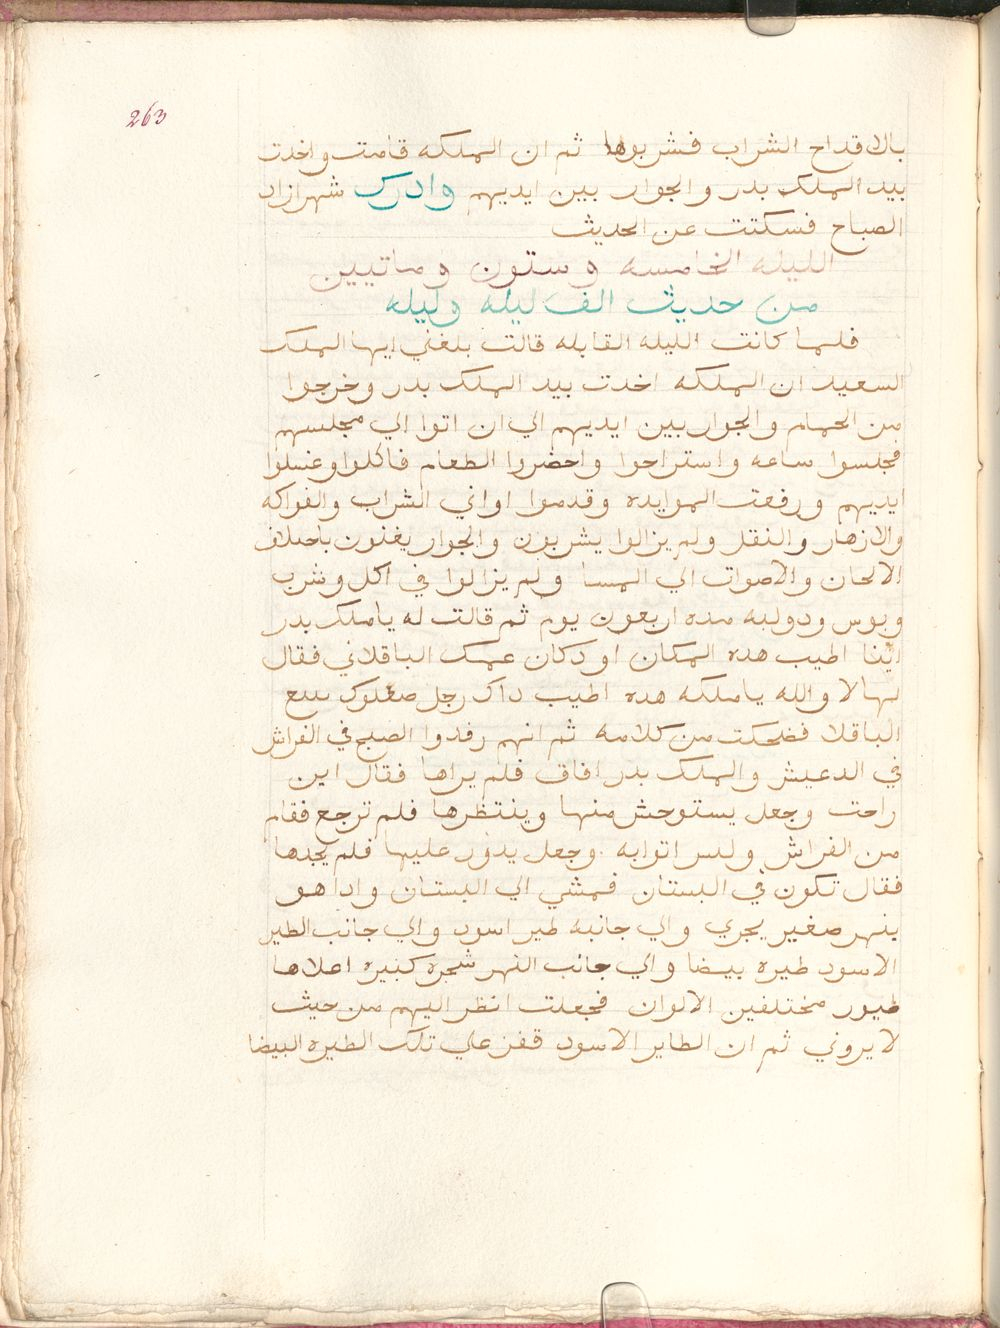 263
بالاقداح الشراب فشربوها ثم ان الملكه قامت واخدت
بيد الملك بدر والجوار بين ايديهم وادرك شهرازاد
الصباح فسكتت عن الحديث
الليله الخامسه وستون وماتيين
من حديث الف ليله وليله
فلما كانت الليله القابله قالت بلغني ايها الملك
السعيد ان الملكه اخدت بيد الملك بدر وخرجوا
من الحمام والجوار بين ايديهم الي ان اتوا الي مجلسهم
فجلسوا ساعه واستراحوا واحضروا الطعام فاكلوا وغسلوا
ايديهم ورفعت الموايده وقدموا اواني الشراب والفواكه
والازهار والنقل ولم يزالوا يشربون والجوار يغنون باختلاف
الالحان والاصوات الي المسا ولم يزالوا في اكل وشرب
وبوس ودولبه مده اربعون يوم ثم قالت له يا ملك بدر
ايّنا اطيب هده المكان او دكان عمك الباقلاني فقال
لها لا والله يا ملكه هده اطيب داك رجل صعلوك يبيع
الباقلا فضحكت من كلامه ثم انهم رقدوا الصبح في الفراش
في الدعيش والملك بدر افاق فلم يراها فقال اين
راحت وجعل يستوحش منها وينتظرها فلم ترجع فقام
من الفراش ولبس اتوابه وجعل يدوّر عليها فلم يجدها
فقال تكون في البستان فمشي الي البستان وادا هو
بنهر صغير يجري والي جانبه طير اسود والي جانب الطير
الاسود طيره بيضا والي جانب النهر شجره كبيره اعلاها
طيور مختلفين الالوان فجعلت انظر اليهم من حيث
لا يروني ثم ان الطاير الاسود قفز علي تلك الطيره البيضا